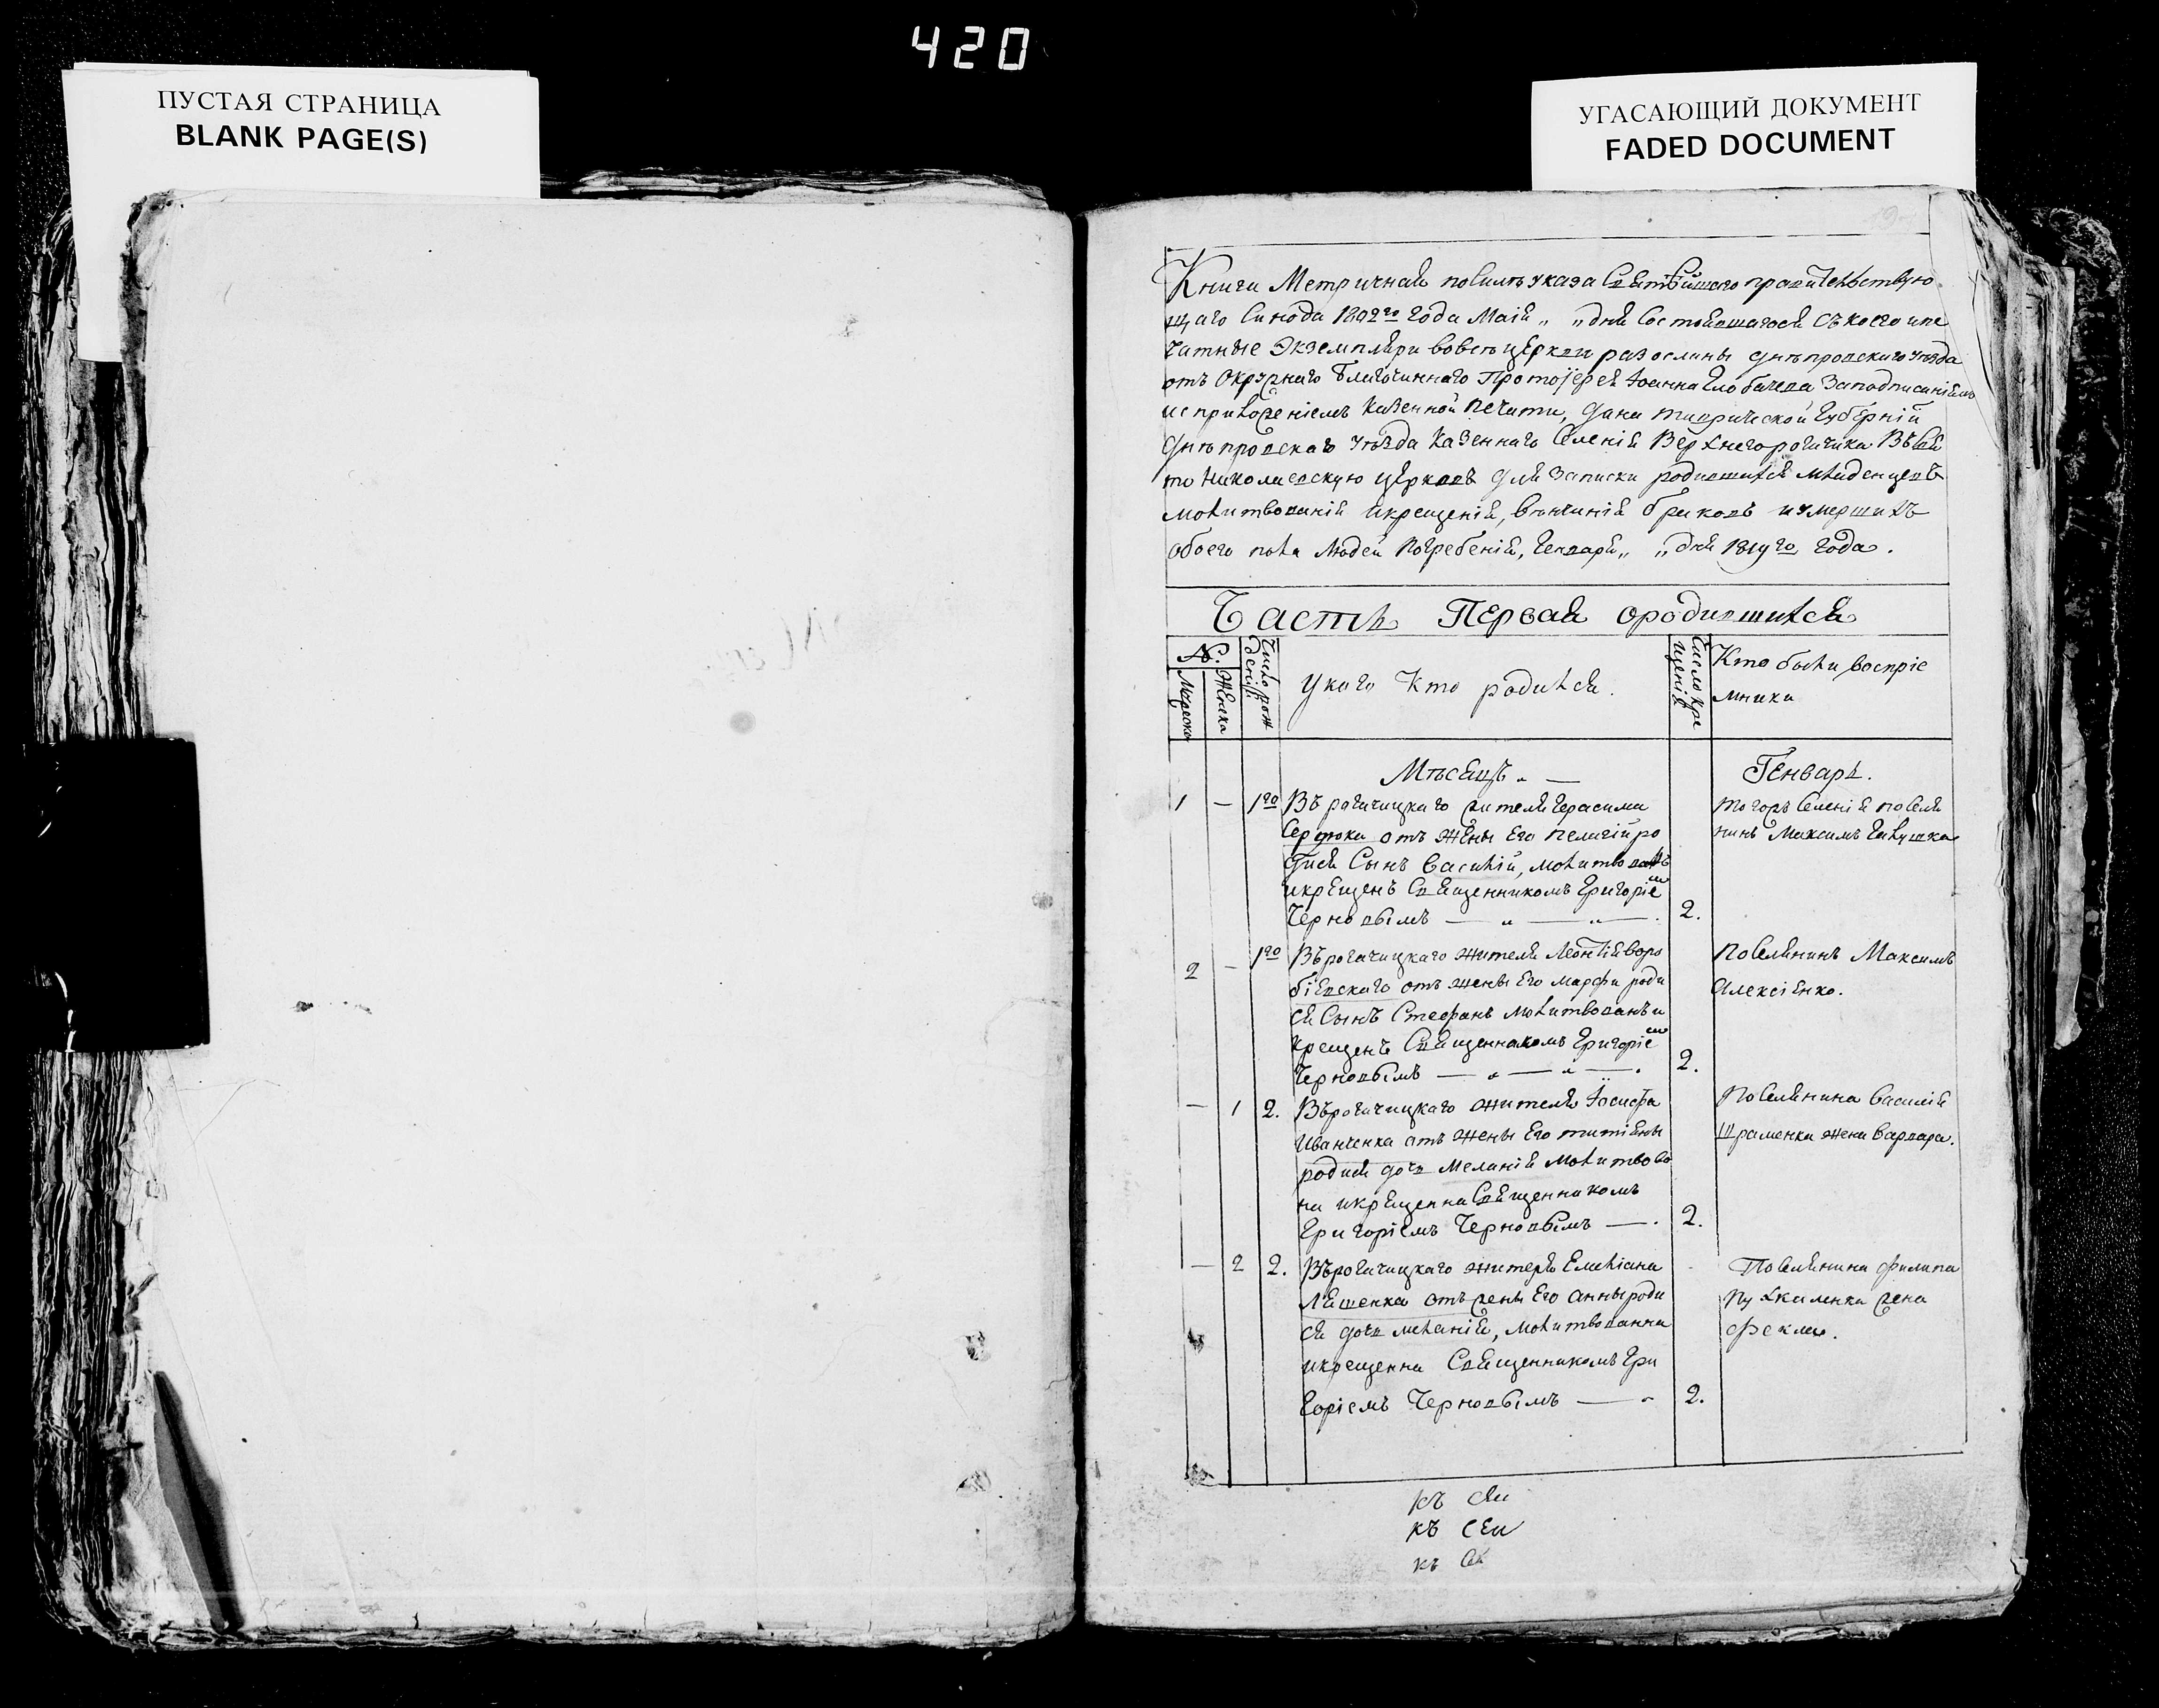 420
ПУСТАЯ СТРАНИЦА
BLANK PAGE(S)
УГАСАЮЩИЙ ДОКУМЕНТ
FADED DOCUMENT
Книга Метричная по силѣ указа Святѣйшаго правительствую
щаго Синода 1802го года Маія „ „ дня Состоявшагося съ коего и пе
чатные Экземпляри во всѣ церкви разосланы Днѣпровскаго уѣзда
отъ Окружнаго благочиннаго Протоіерея Іоанна за подписаніемъ
и с приложеніемъ Казенной печати, дана таврической Губерніи
Днѣпровскаго уѣзда Казеннаго Селенія Верхнегорогачика Въ Свя
то Николаевскую церковь для Записки родившихся младенцевъ
молитвованія и крещенія, вѣнчанія браковъ и умершихъ
обоего пола людей Погребенія, Генваря „ „ дня 1819го Года.
Часть Первая о родившихся
№.
Мужеска
Женска
Число рож
денія
У кого Кто родился.
Число кре
щенія
Кто были воспріе
мники
Мѣсяцъ „ — Генварь.
1 — 1го Въ рогачицкаго жителя Герасима
Сердюка отъ жены Его Пелагіи ро
дися Сынъ Василій, молитвованъ
и крещенъ Священникомъ Григоріе
м
Чернявымъ — „ — „ — . 2.
того жъ Селенія поселя
нинъ Максимъ Галушка
2 — 1го Въ рогачицкаго жителя Леонтія Воро
біевскаго отъ жены Его Марфи роди
ся Сынъ Стефанъ молитвованъ и
крещенъ Священникомъ Григоріе
м
Чернявымъ — „ — „ — . 2.
Поселянинъ Максимъ
Алексіенко.
— 1 2. Въ рогачицкаго жителя Іосифа
Иванченка отъ жены Его титіяны
родися дочь Меланія молитвова
на и крещенна Священникомъ
Григоріемъ Чернявымъ — . 2.
Поселянина Василія
Шраменка жена Варвара.
— 2 2. Въ рогачицкаго жителя Емиліана
Ляшенка отъ жены Его Анны роди
ся дочь меланія, молитвованна
и крещенна Священникомъ Гри
горіемъ Чернявымъ — „ 2.
Поселянина Филипа
жена
Фекла.
къ
къ сеи
къ